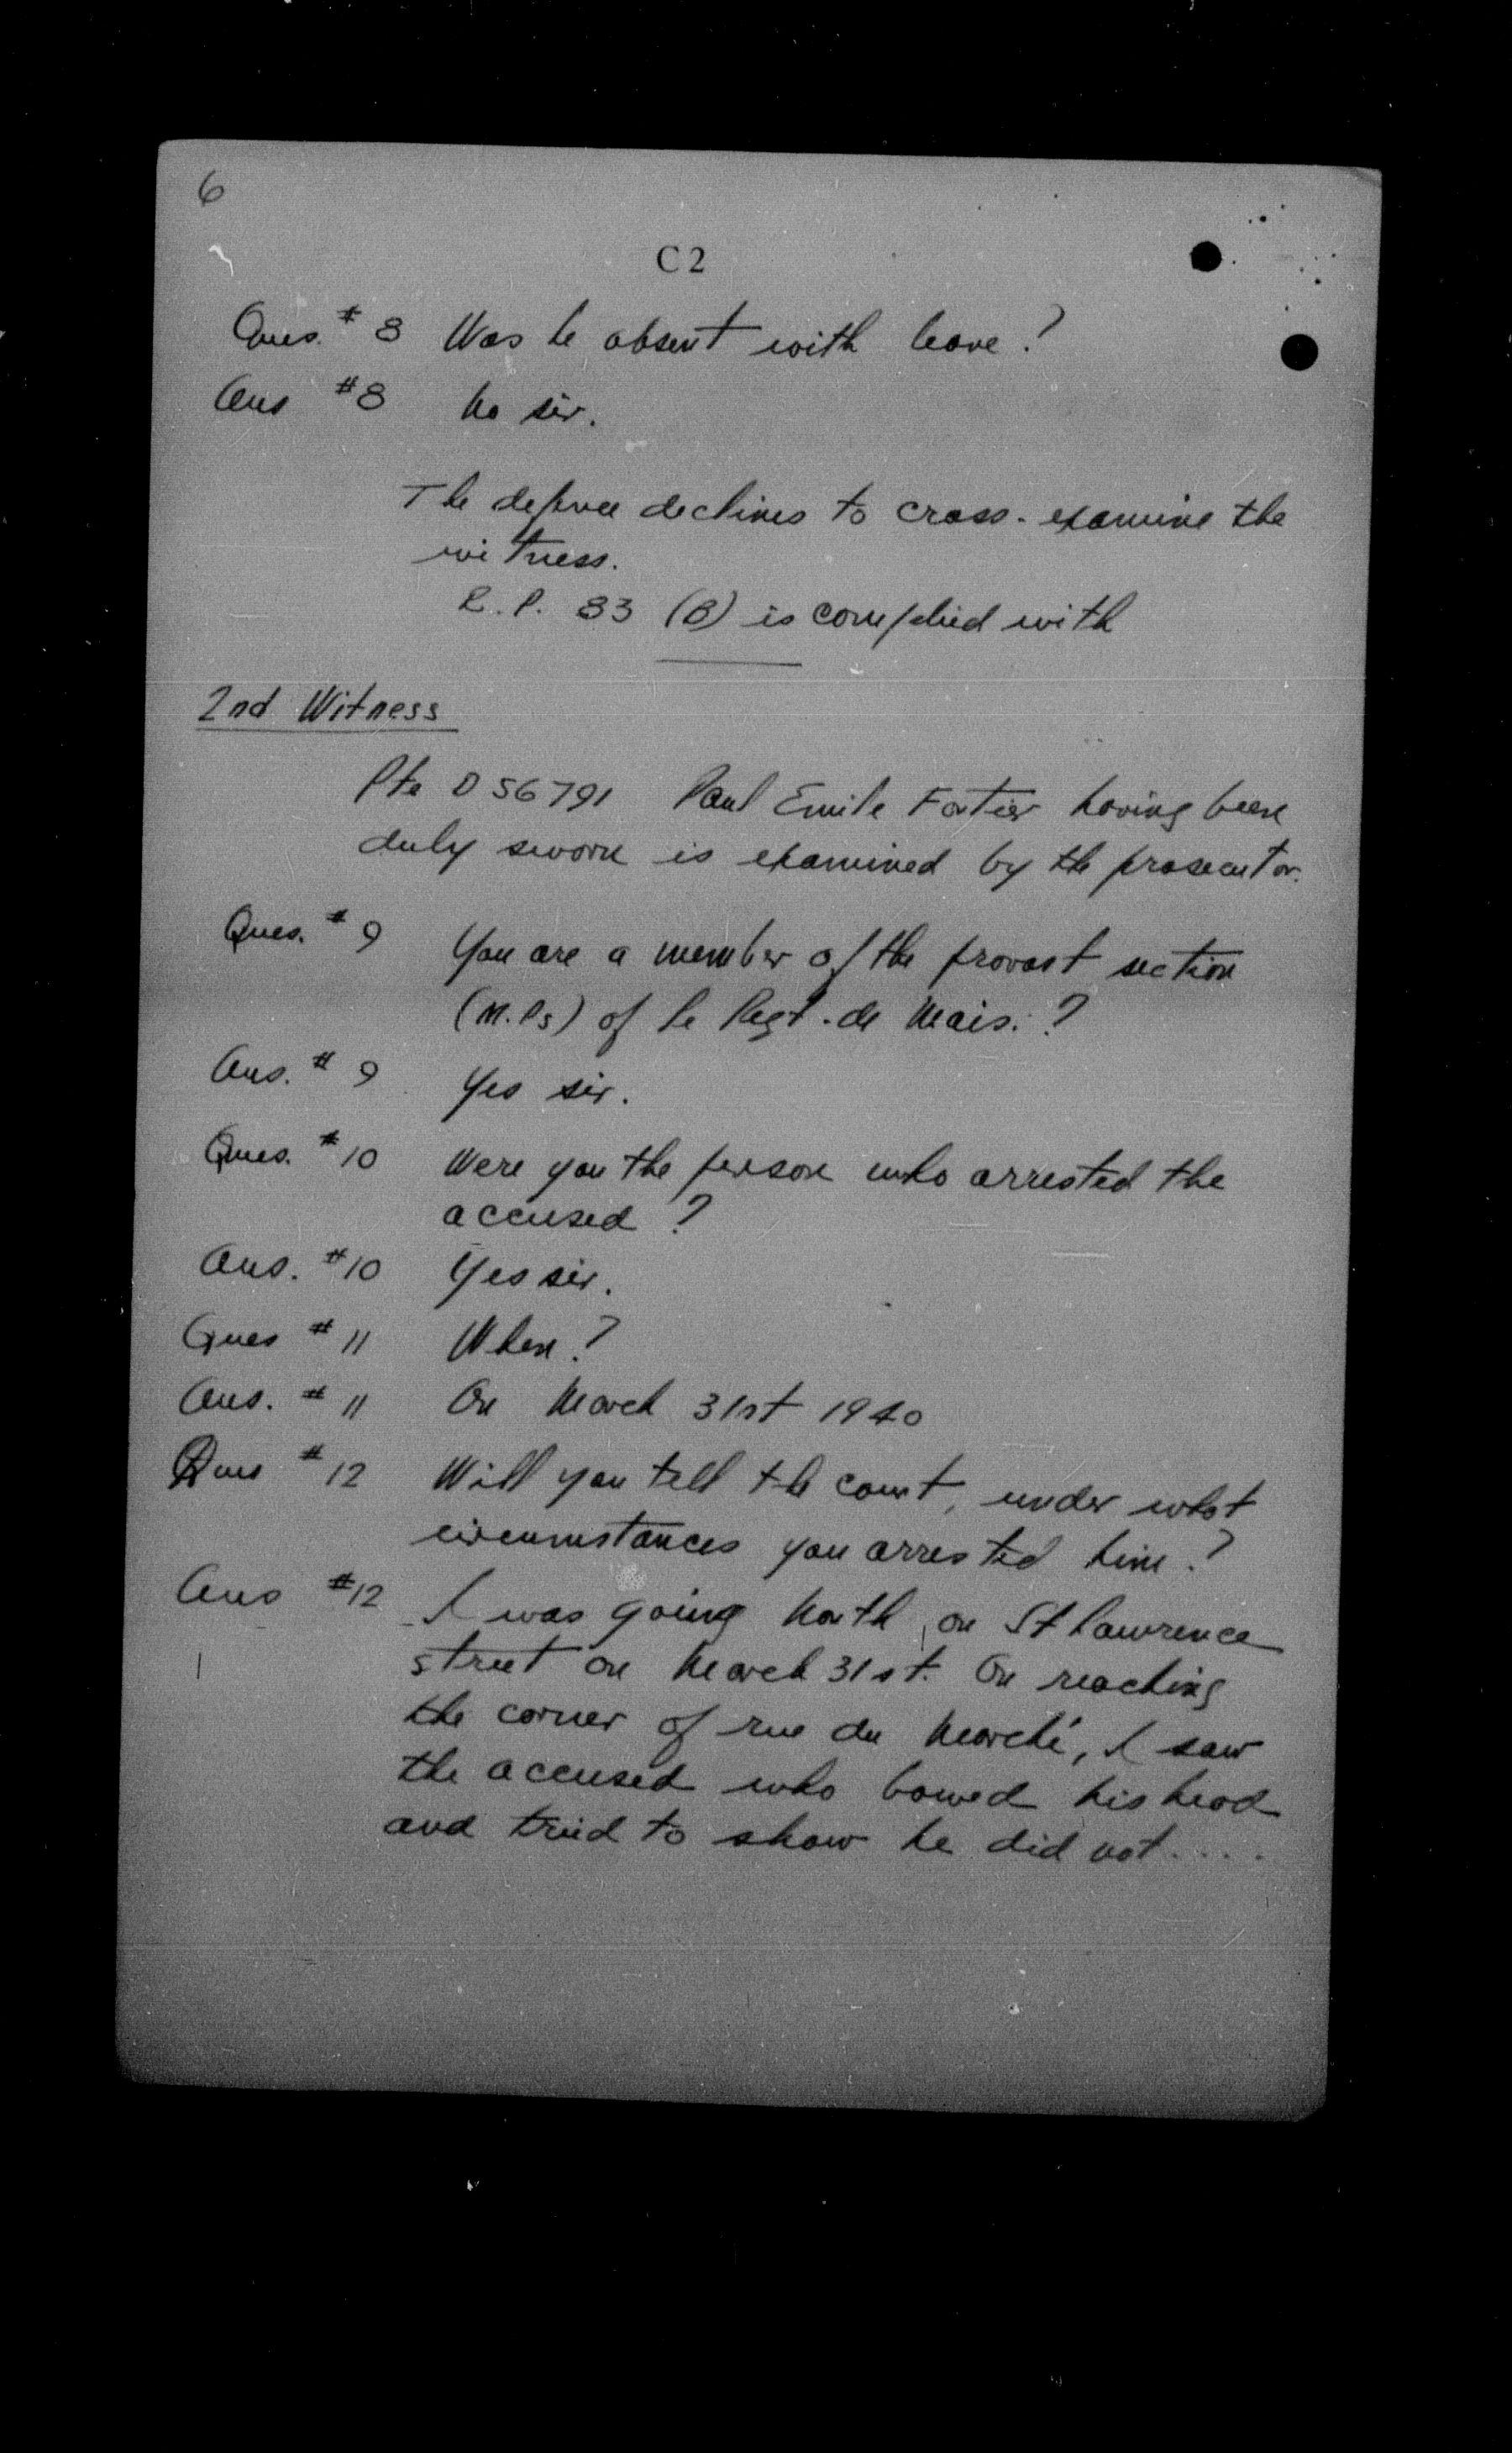 6
C2
Ques. # 8 Was he absent with leave?
Ans #8 No sir.
The defence declines to cross-examine the
witness.
R.P. 83 (B) is complied with
2nd Witness
Pte D 56791 Paul Emile Fortier having been
duly sworn is examined by the prosecutor.
Ques. # 9 You are a member of the provost section
(M.Ps) of le Regt. de Mais.?
Ans. # 9 Yes sir.
Ques. # 10 Were you the person who arrested the
accused?
Ans. # 10 Yes sir.
Ques # 11 When?
Ans. # 11 On March 31st 1940
Ques # 12 Will you tell the court, under what
circumstances you arrested him?
Ans #12 I was going North, on St Lawrence
street on March 31st. On reaching
the corner of rue du Marché, I saw
the accused who bowed his head
and tried to show he did not....